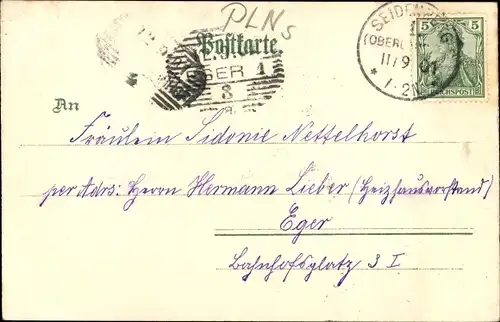 PLNs
Postkarte.
SEIDENBERG
(OBERL
11/9 01
* 1-2N
5 5
REICHSPOST
EGER 1
3
An
Fräulein Sidonie Nettelhorst
per Adrs: Herrn Hermann Lieber (Heizhausvorstand)
Eger
Bahnhofsplatz 3 I